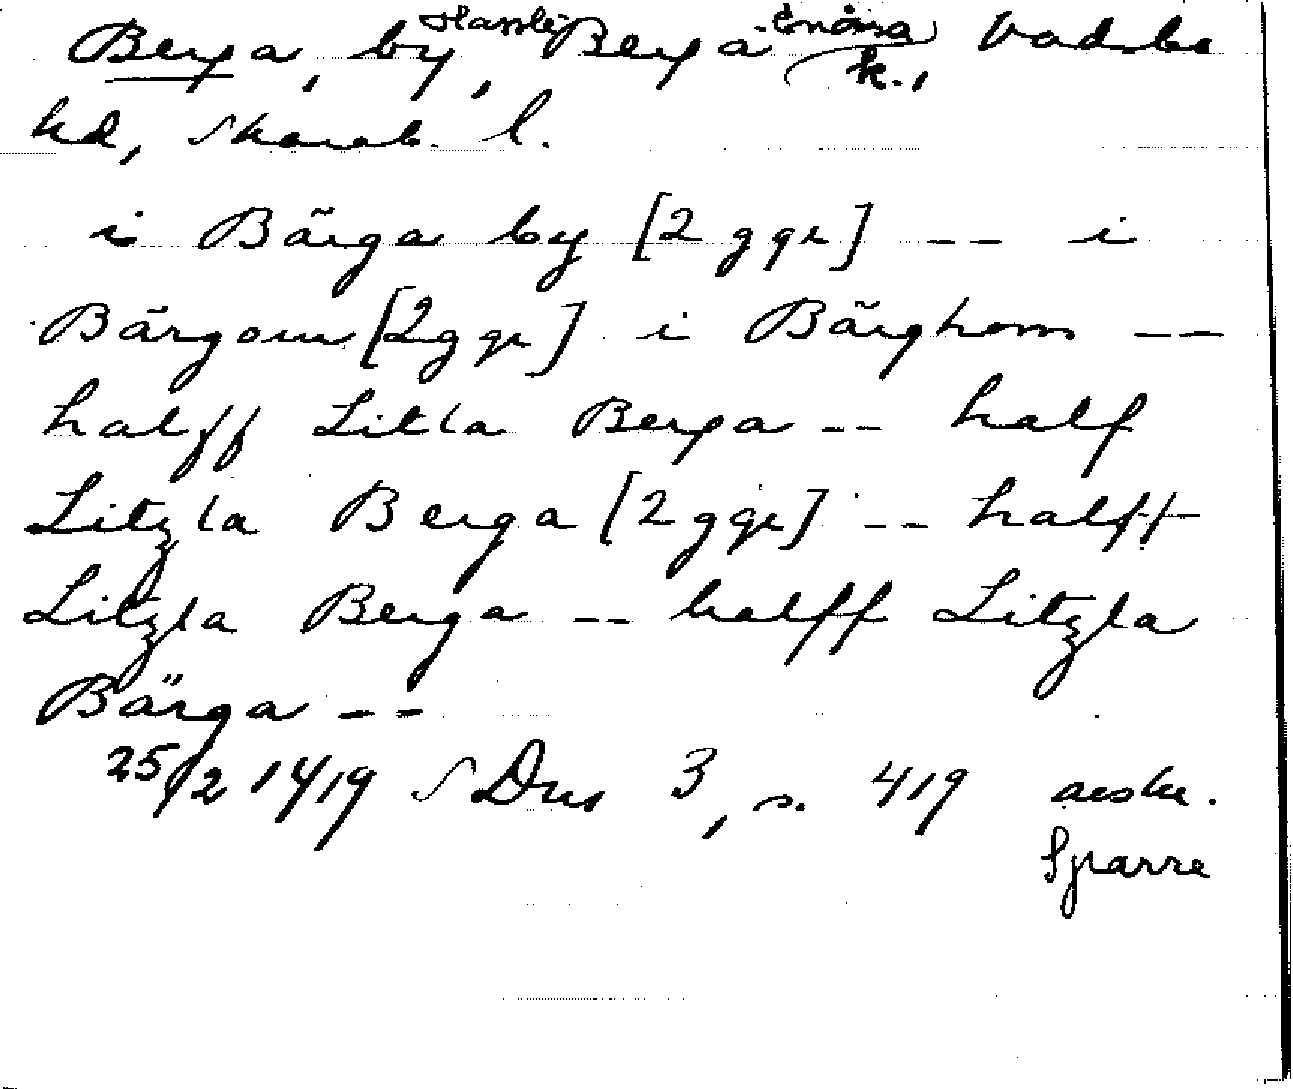 Berga, by, Hassle-Berga-Enåsa k., Vadsbo
hd, Skarab. l.
i Bärga by [2 ggr] -- i
Bärgom [2 ggr] i Bärghom --
halff Litla Berga -- half
Litzla Berga [2 ggr] -- halff
Litzla Berga -- halff Litzla
Bärga --
25/2 1419 SDns 3, s. 419 avskr.
Sparre